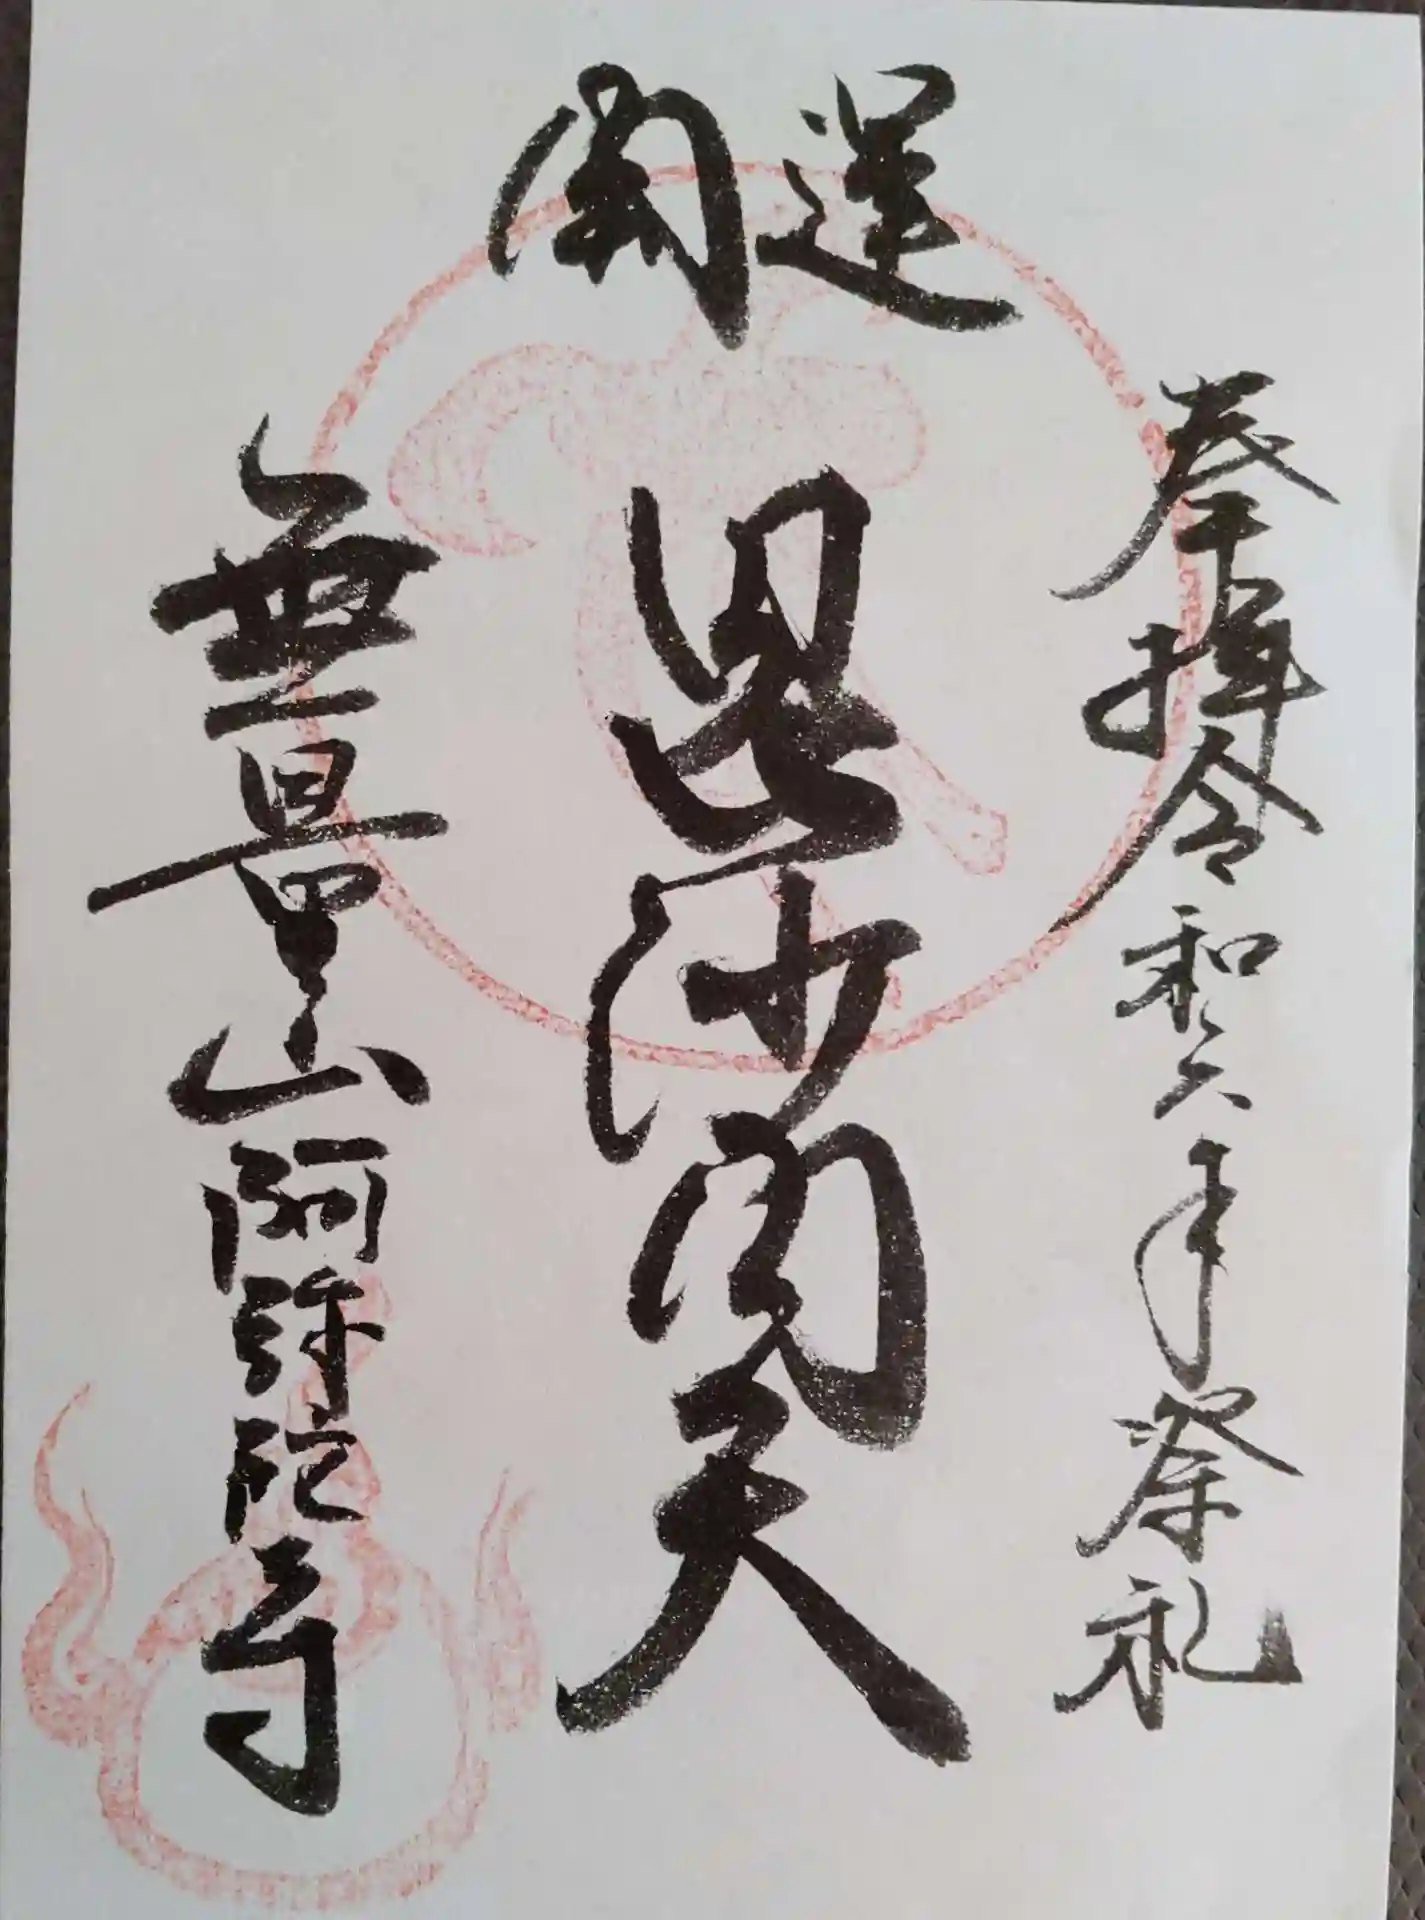 開運
奉拝令和六年祭礼
毘沙門天
無量山阿弥陀寺